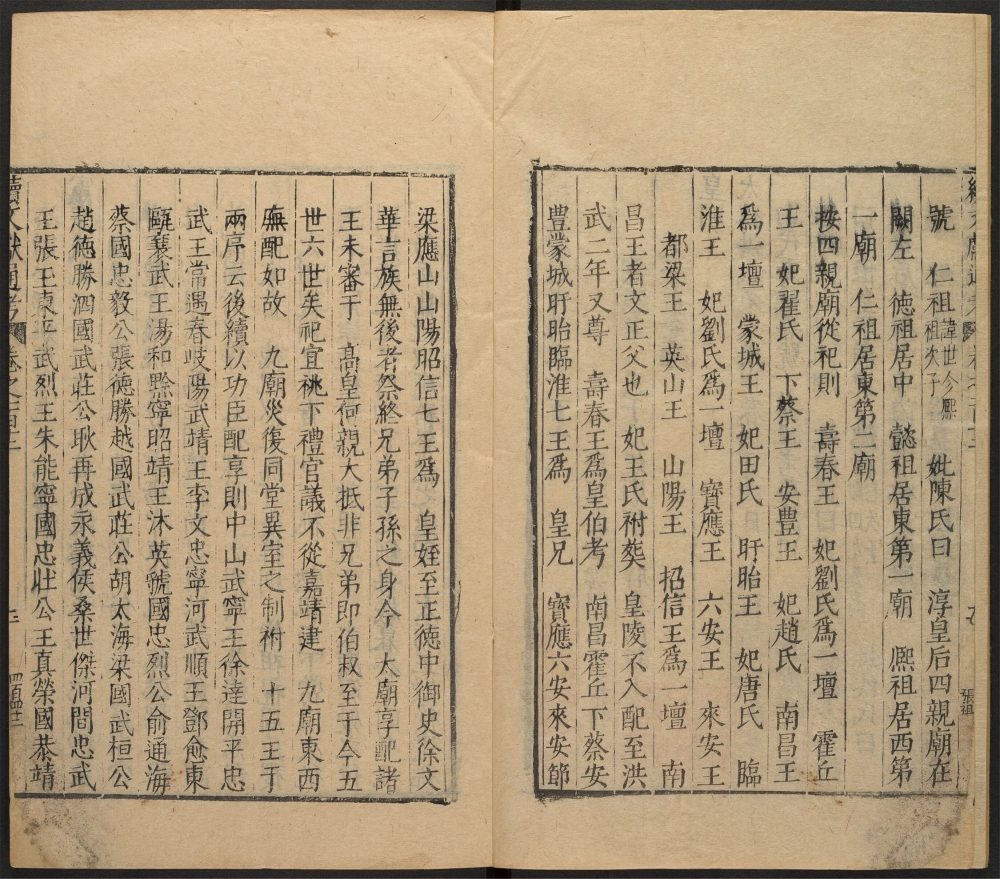 號　仁祖諱世珍熙祖次子　妣陳氏曰　淳皇后四親廟在
闕左　德祖居中　懿祖居東第一廟　熈祖居西第
一廟　仁祖居東第二廟
按四親廟從祀則　壽春王　妃劉氏爲一壇　霍丘
王　妃翟氏　下蔡王　安豊王　妃趙氏　南昌王
爲一壇　蒙城王　妃田氏　盱眙王　妃唐氏　臨
淮王　妃劉氏爲一壇　寳應王　六安王　來安王
都梁王　英山王　山陽王　招信王爲一壇　南
昌王者文正父也　妃王氏祔葬　皇陵不入配至洪
武二年又尊　壽春王爲皇伯考　南昌霍丘下蔡安
豊蒙城盱眙臨淮七王爲　皇兄　寳應六安來安節
梁應山山陽昭信七王爲　皇姪至正德中御史徐文
華言族無後者祭終兄弟子孫之身今　太廟享配諸
王未審于　髙皇何親大抵非兄弟即伯叔至于今五
世六世矣祀宜祧下禮官議不從嘉靖建　九廟東西
廡配如故　九廟災復同堂異室之制祔　十五王于
兩序云後續以功臣配享則中山武寧王徐達開平忠
武王常遇春岐陽武靖王李文忠寧河武順王鄧愈東
甌襄武王湯和黔寧昭靖王沐英虢國忠烈公俞通海
蔡國忠毅公張德勝越國武莊公胡大海梁國武桓公
趙德勝泗國武莊公耿再成永義侯桑世傑河間忠武
王張王東平武烈王朱能寧國忠壯公王真榮國恭靖
續文獻通考　卷之百三
張組